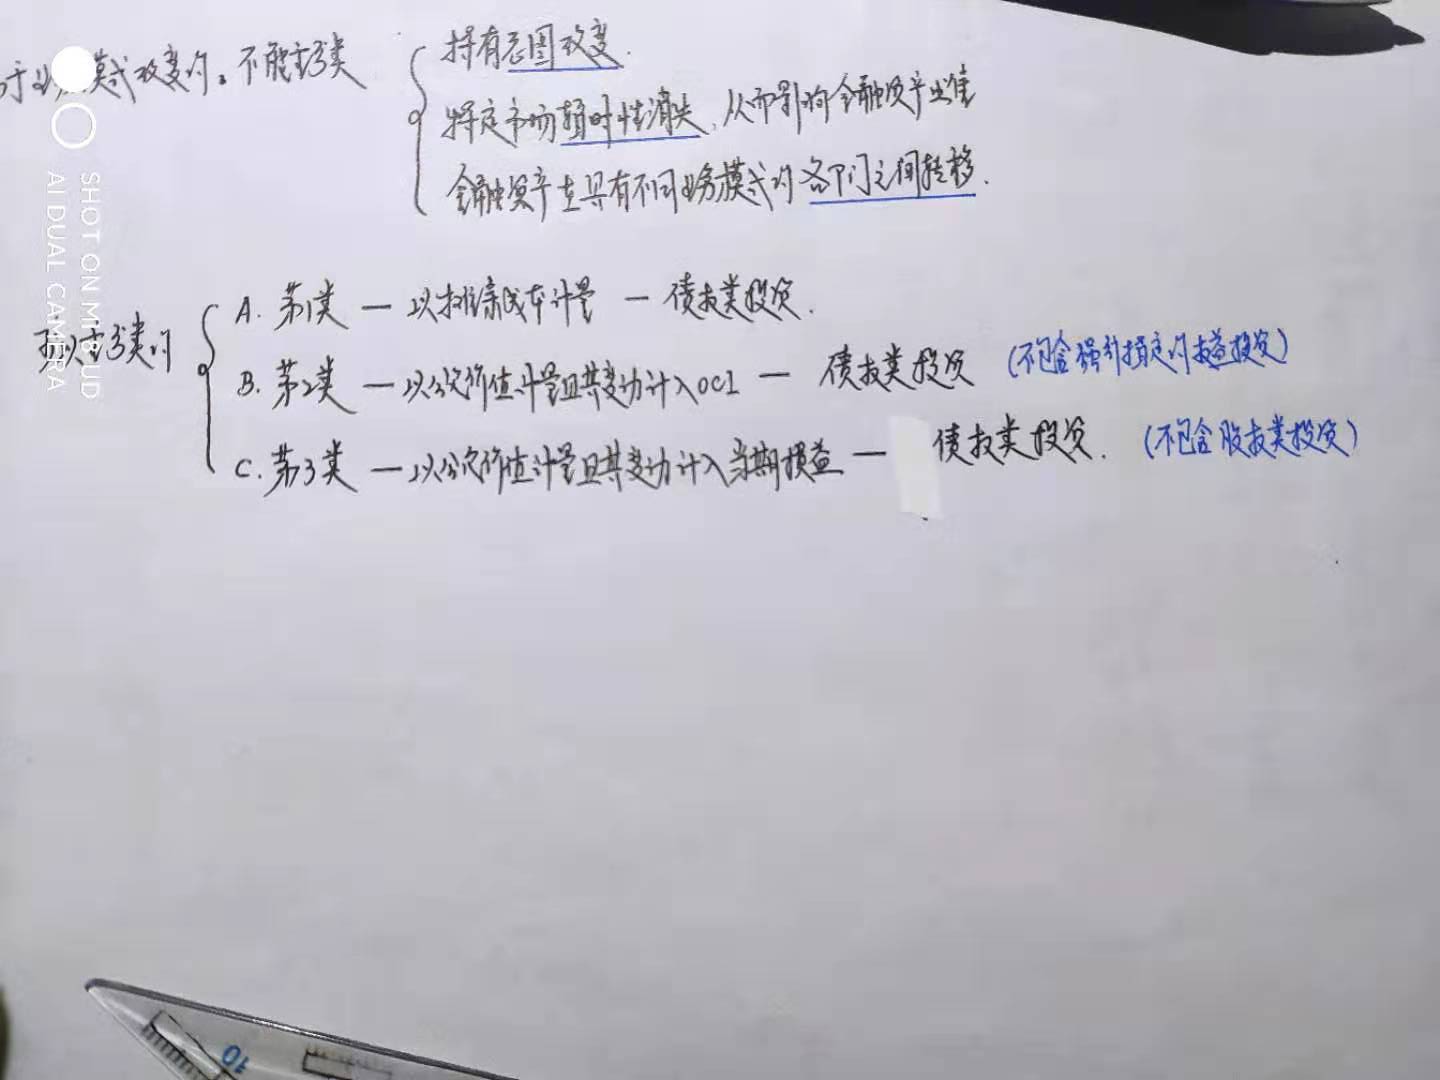 于业模式改变的。不能重分类
持有意图改变.
特定市场暂时性消失,从而影响金融资产出售
金融资产在具有不同业务模式的各部门之间转移.
可以重分类的
A. 第1类 — 以摊余成本计量 — 债权类投资.
B. 第2类 — 以公允价值计量且其变动计入OCI — 债权类投资 (不包含强行指定的权益投资)
C. 第3类 — 以公允价值计量且其变动计入当期损益 — 债权类投资. (不包含股权类投资)
SHOT ON MI 8 UD
AI DUAL CAMERA
10